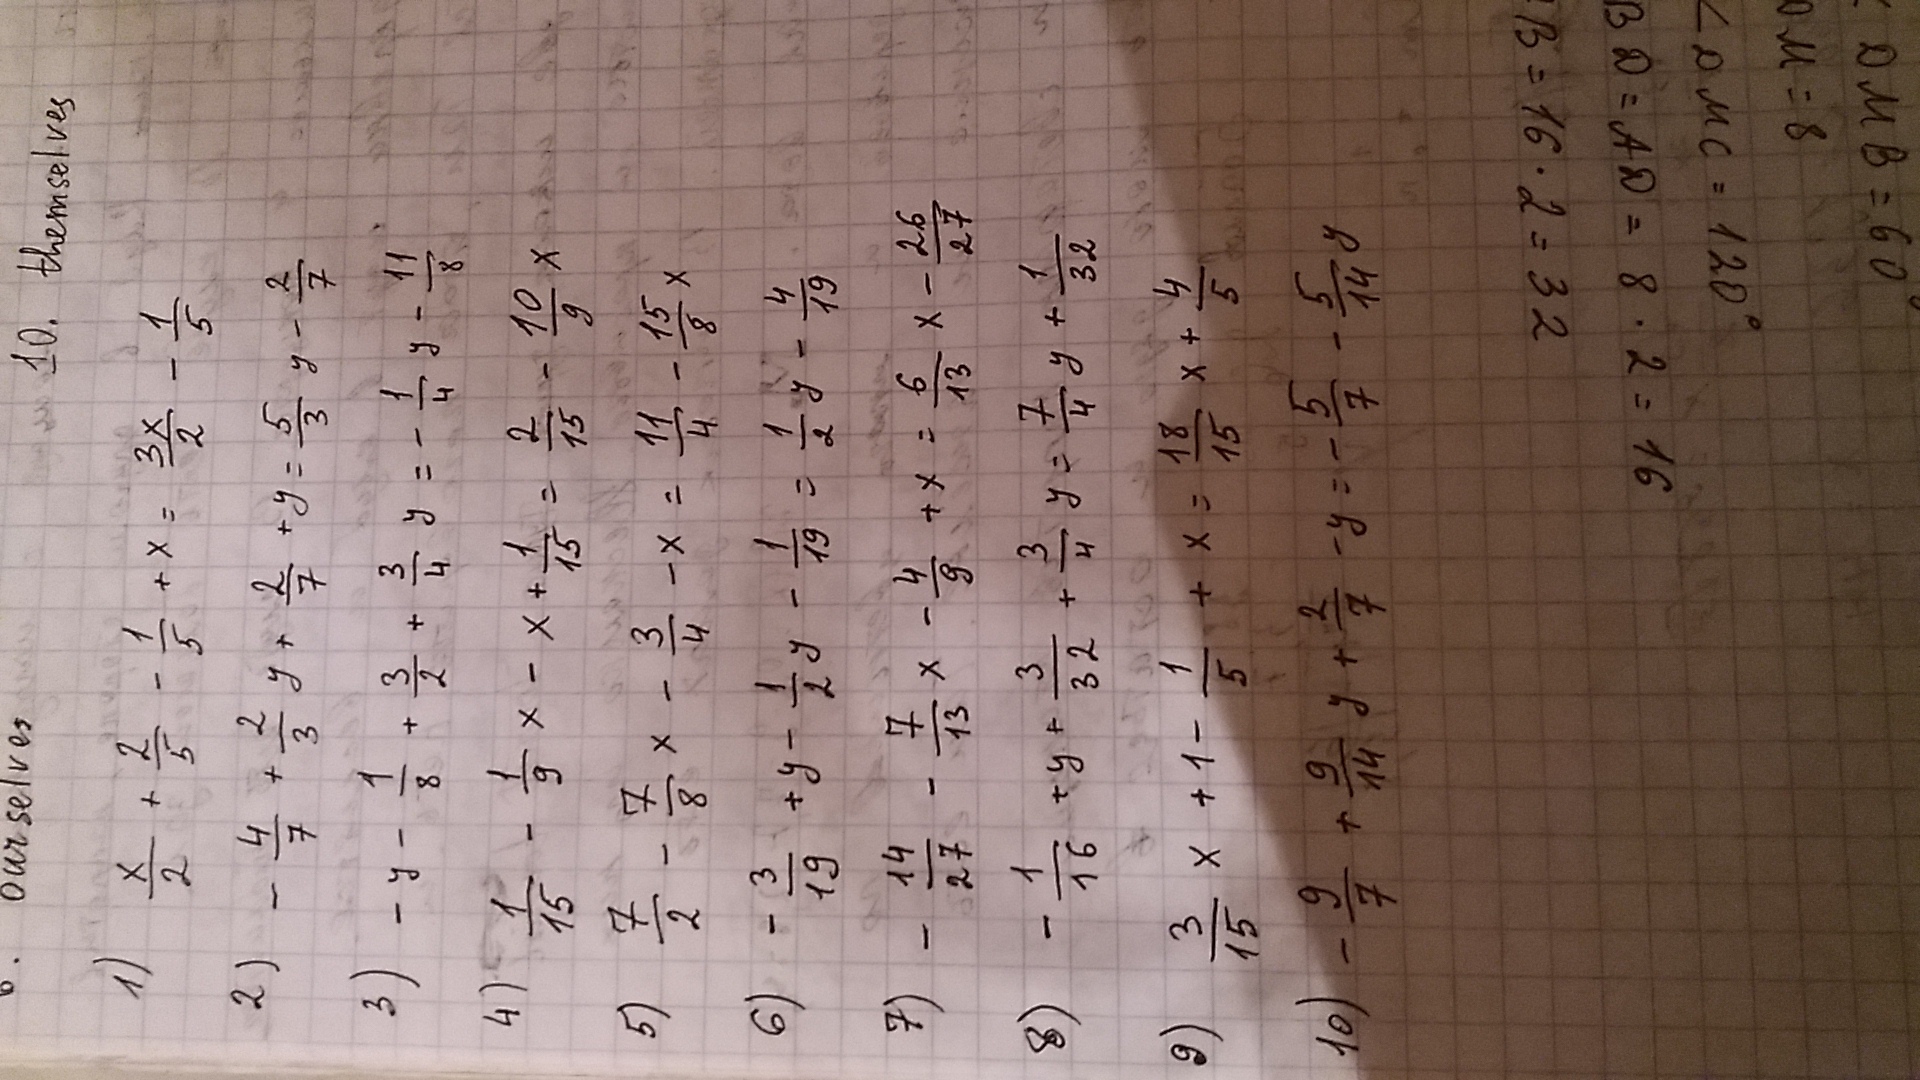 6. ourselves 10. themselves
1) x/2 + 2/5 - 1/5 + x = 3x/2 - 1/5
2) - 4/7 + 2/3 y + 2/7 + y = 5/3 y - 2/7
3) - y - 1/8 + 3/2 + 3/4 y = - 1/4 y - 11/8
4) 1/15 - 1/9 x - x + 1/15 = 2/15 - 10/9 x
5) 7/2 - 7/8 x - 3/4 - x = 11/4 - 15/8 x
6) - 3/19 + y - 1/2 y - 1/19 = 1/2 y - 4/19
7) - 14/27 - 7/13 x - 4/9 + x = 6/13 x - 26/27
8) - 1/16 + y + 3/32 + 3/4 y = 7/4 y + 1/32
9) 3/15 x + 1 - 1/5 + x = 18/15 x + 4/5
10) - 9/7 + 9/14 y + 2/7 - y = - 5/7 - 5/14 y
DMB = 60°
DM = 8
∠DMC = 120°
BD = AD = 8 · 2 = 16
B = 16 · 2 = 32